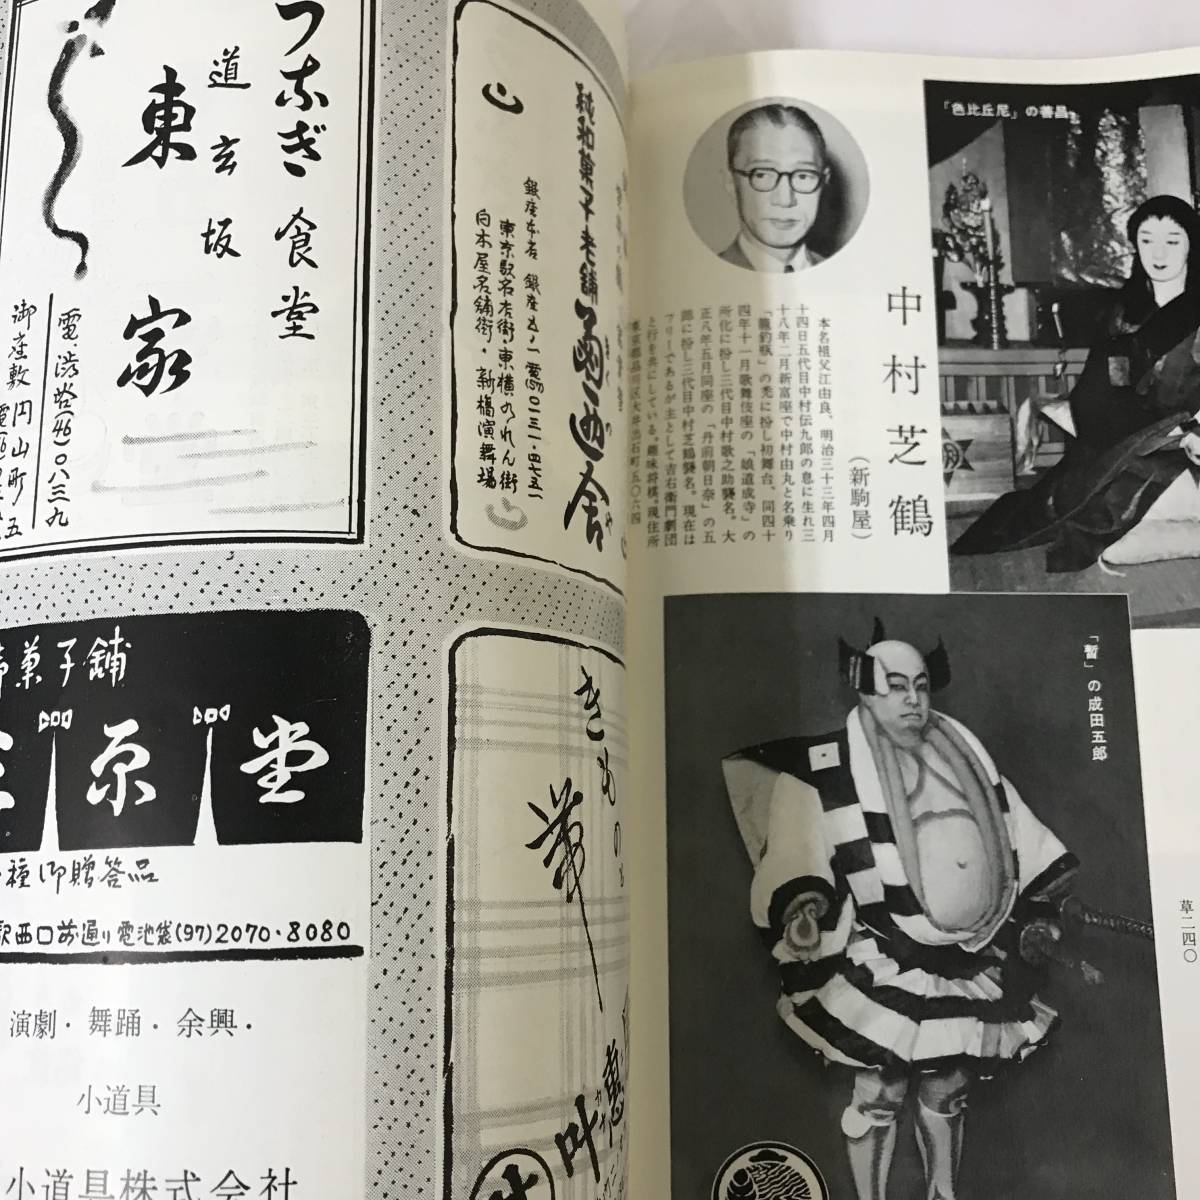 つなぎ食堂
道玄坂
東家
電・渋谷(46)〇八三九
御座敷 円山町
純和菓子老舗
銀座本店 銀座
東京駅名店街・東横のれん街
白木屋名舗街・新橋演舞場
菓子舗
原堂
種御贈答品
西口前通り電池袋(97)2070・8080
きものと
帯
叶
演劇・舞踊・余興・
小道具
小道具株式会社
「色比丘尼」の善昌
中村芝鶴
(新駒屋)
本名祖父江由良、明治三十三年四月
十四日五代目中村伝九郎の息に生れ三
十八年二月新富座で中村由丸と名乗り
「籠釣瓶」の禿に扮し初舞台、同四十
四年十一月歌舞伎座の「娘道成寺」の
所化に扮し三代目中村歌之助襲名。大
正八年五月同座の「丹前朝日奈」の五
郎に扮し三代目中村芝鶴襲名。現在は
フリーであるが主として吉右衛門劇団
と行を共にしている。趣味将棋。現住所
東京都品川区大井出石町五〇六四
「暫」の成田五郎
草二四〇